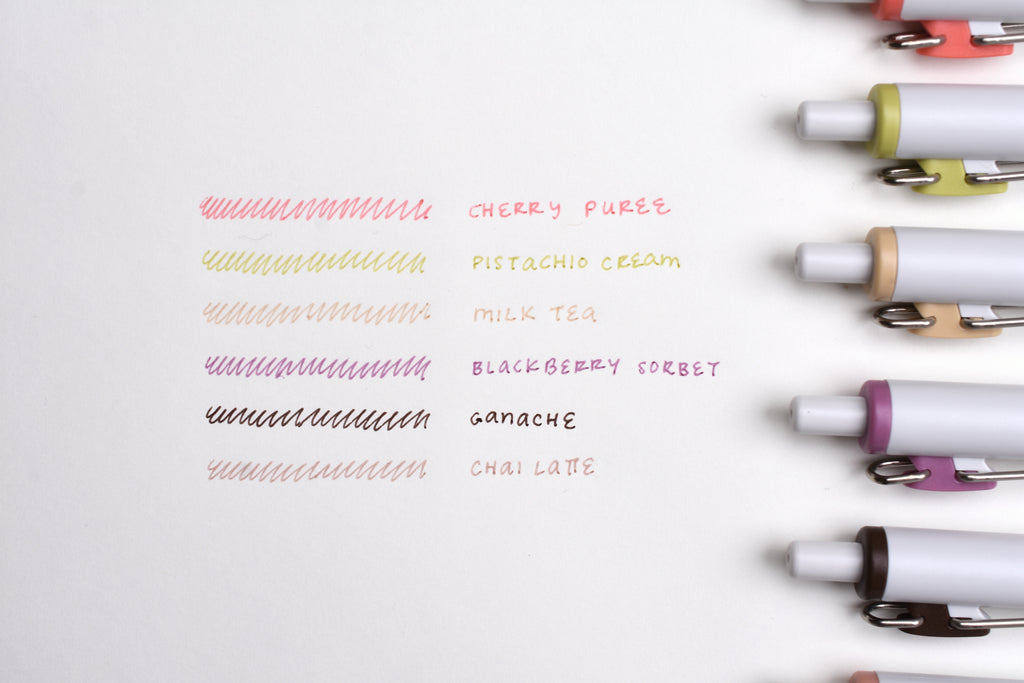 CHERRY PUREE
PISTACHIO CREAM
MILK TEA
BLACKBERRY SORBET
GANACHE
CHAI LATTE